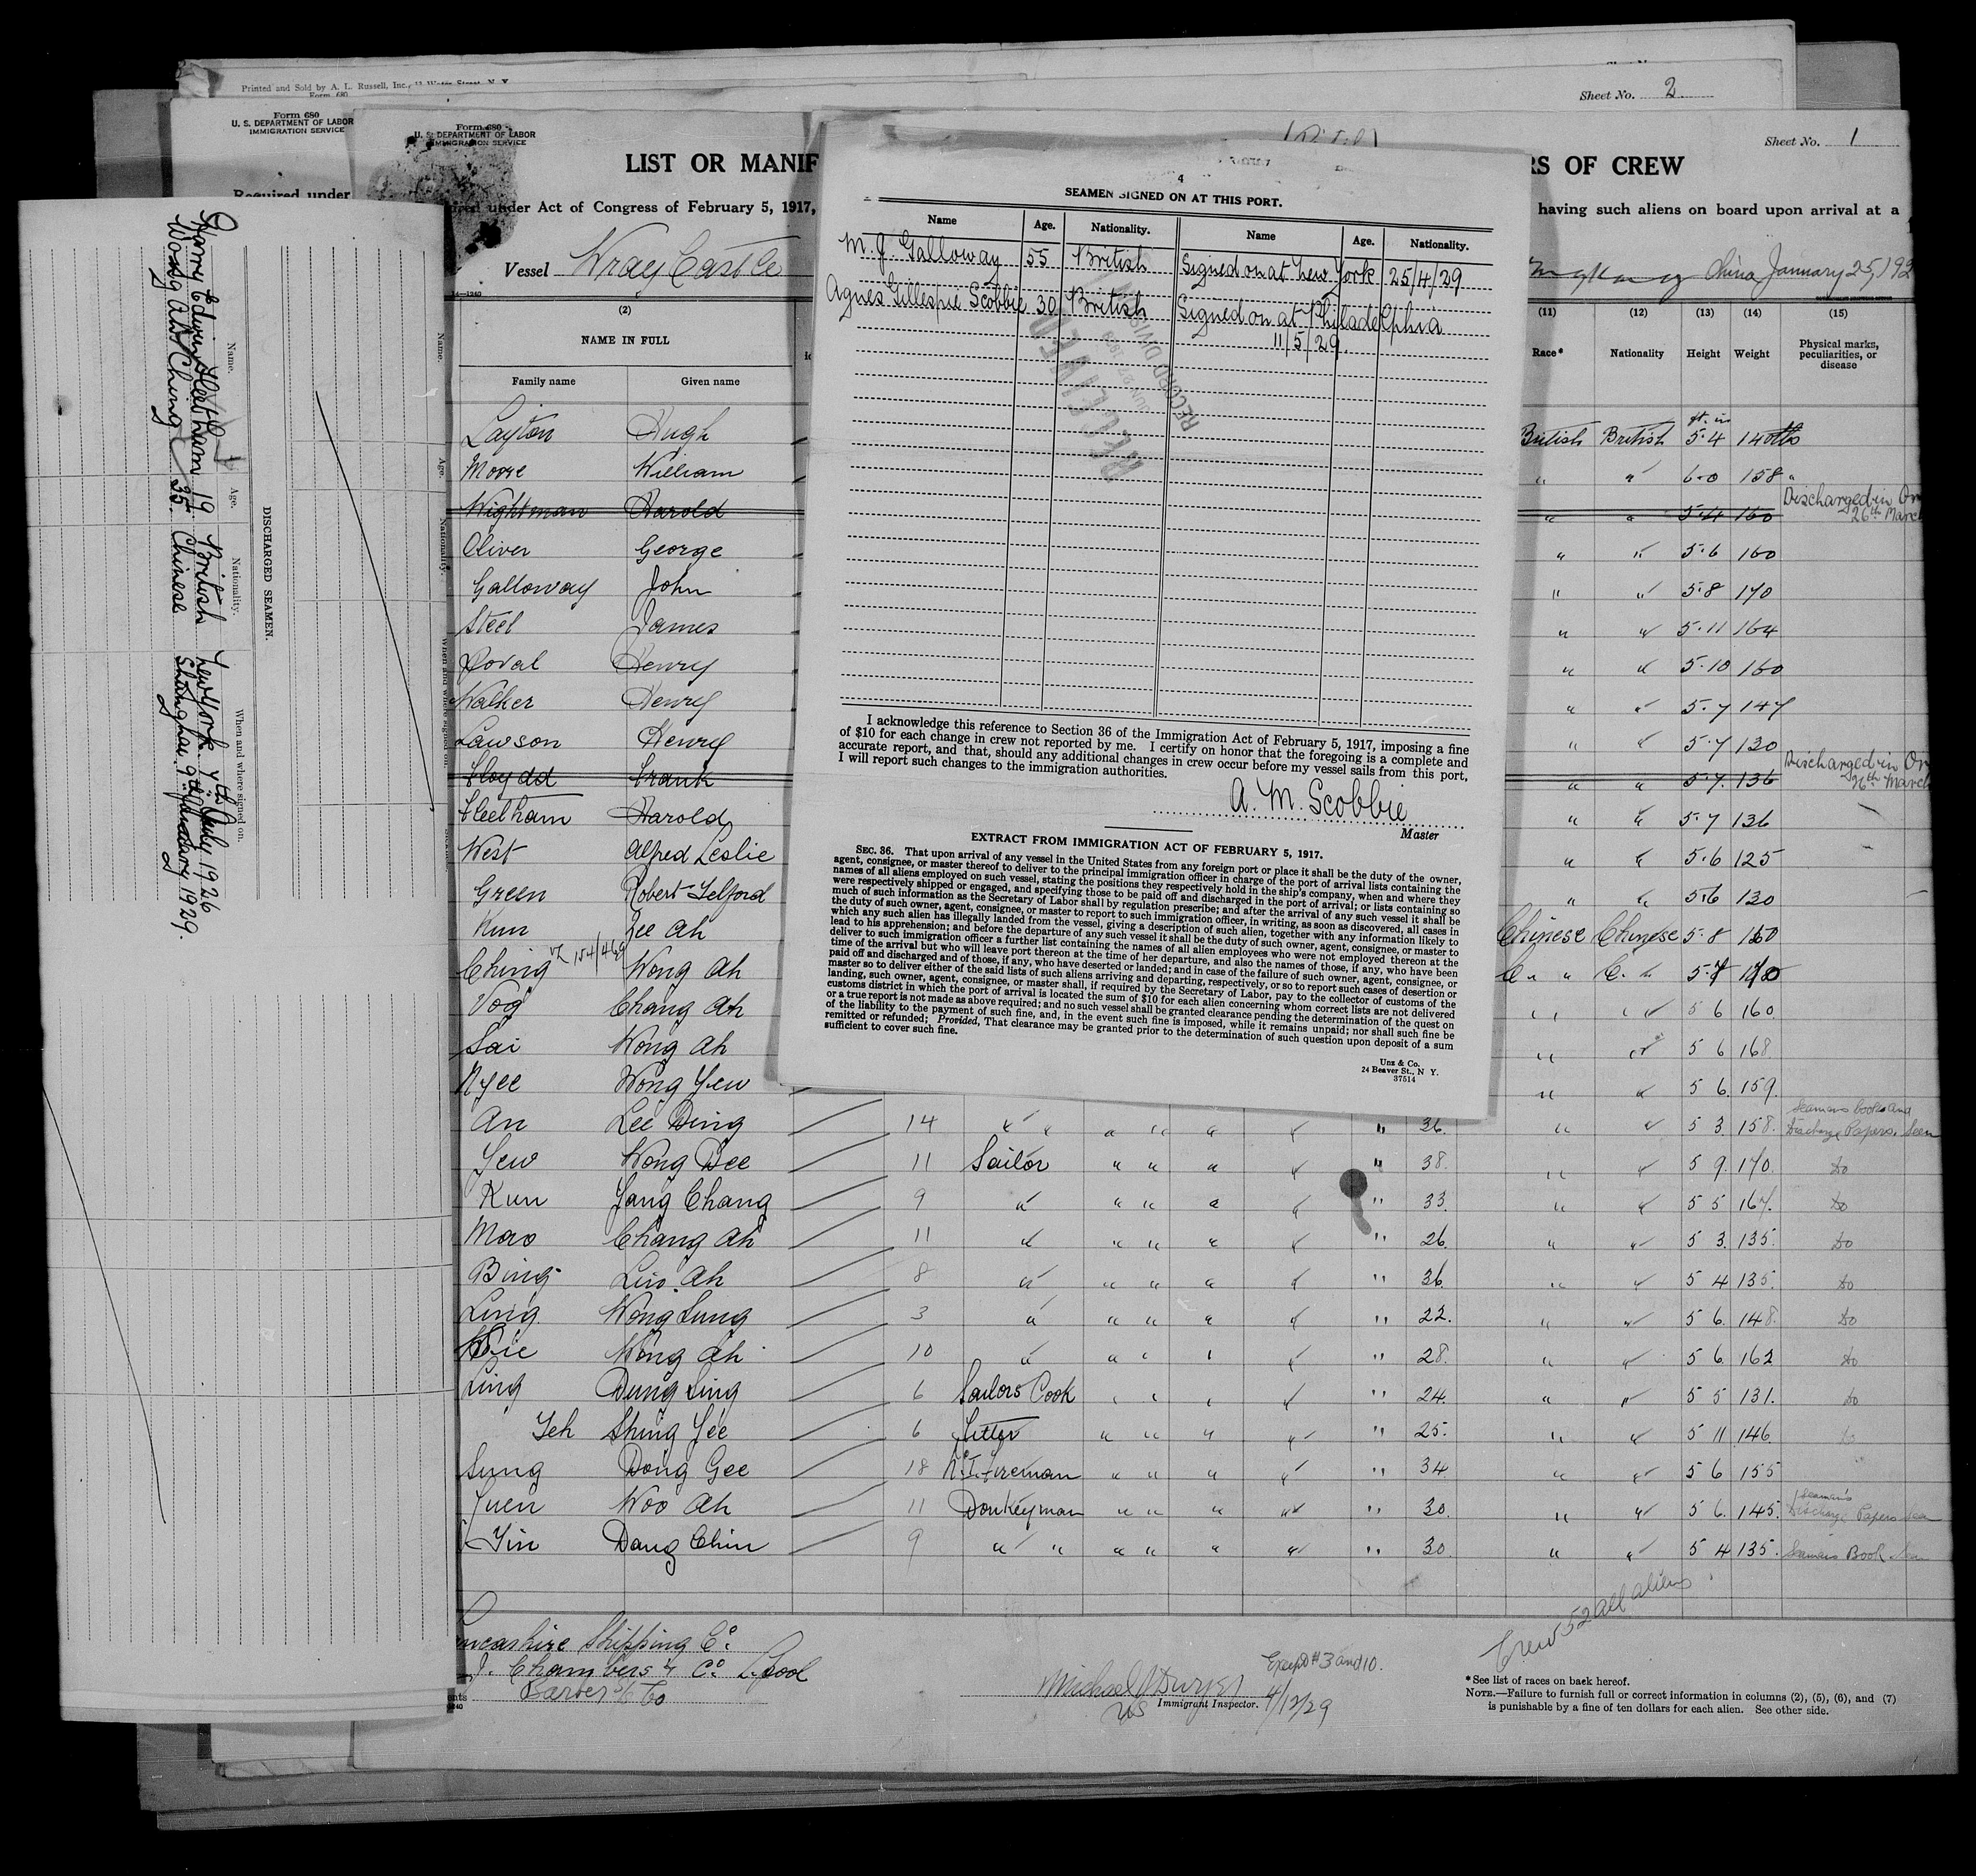 Printed and Sold by A. L. Russell, Inc.,
Form 680
Sheet No. 2
Form 680
U. S. DEPARTMENT OF LABOR
IMMIGRATION SERVICE
Required under
Form 680
U. S. DEPARTMENT OF LABOR
IMMIGRATION SERVICE
Sheet No. 1
LIST OR MANIF
RS OF CREW
under Act of Congress of February 5, 1917,
having such aliens on board upon arrival at a
Vessel Wray Castle
China January 25, 192
(2)
NAME IN FULL
Family name Given name
(11) (12) (13) (14) (15)
Race* Nationality Height Weight Physical marks, peculiarities, or disease
ft. in
Layton Hugh British British 5.4 140 lbs
Moore William " " 6-0 158 "
Wightman Harold " " 5.4 160 Discharged in 26th March
Oliver George " " 5.6 160
Galloway John " " 5.8 170
Steel James " " 5.11 164
Doval Henry " " 5.10 160
Walker Henry " " 5.7 147
Lawson Henry " " 5.7 130
Floydd Frank " " 5.7. 136 Discharged in 26th March
Fleetham Harold " " 5.7 136
West Alfred Leslie " " 5.6 125
Green Robert Telford " " 5.6 130
Kun Lee Ah Chinese Chinese 5.8 160
Ching Wong Ah
Vog Chang Ah " " 5 6 160
Sai Wong Ah " " 5 6 168
Nyee Wong Yew " " 5 6. 159.
An Lee Ding 14 " " " " " " " 36. " " 5 3. 158. Seamans books and Discharge Papers. Seen
Yew Wong Dee 11 Sailor " " " " " 38. " " 5 9. 170. Do
Kun Yang Chang 9 " " " " " " 33. " " 5 5 167. Do
Mao Chang Ah 11 " " " " " " 26. " " 5 3. 135. Do
Bing Liu Ah 8 " " " " " " 36. " " 5 4 135. Do
Ling Wong Sung 3 " " " " " " 22. " " 5 6. 148. Do
Wong Ah 10 " " " " " " 28. " " 5 6. 162 Do
Ling Dung Sing 6 Sailors Cook " " " " " 24. " " 5 5 131. Do
Yeh Shing Yee 6 Fitter " " " " " 25. " " 5 11 146. Do
Sung Dong Gee 18 N.1. Fireman " " " " " 34 " " 5 6 155
Yuen Woo Ah 11 Donkeyman " " " " " 30. " " 5 6. 145. Seaman's Discharge Papers seen
Yin Dang Chin 9 " " " " " " " 30. " " 5 4 135. Seamans Book
Crew 52 all aliens
Lancashire Shipping Co.
J. Chambers & Co. L.pool
Barber S/S Co
Michael J Dwyer
Except #3 and 10.
Immigrant Inspector. 4/12/29
* See list of races on back hereof.
NOTE.—Failure to furnish full or correct information in columns (2), (5), (6), and (7)
is punishable by a fine of ten dollars for each alien. See other side.
4
SEAMEN SIGNED ON AT THIS PORT.
Name Age. Nationality. Name Age. Nationality.
M. J. Galloway 55 British Signed on at New York 25/4/29
Agnes Gillespie Scobbie 30 British Signed on at Philadelphia
11/5/29.
RECEIVED
RECORD DIVISION
I acknowledge this reference to Section 36 of the Immigration Act of February 5, 1917, imposing a fine
of $10 for each change in crew not reported by me. I certify on honor that the foregoing is a complete and
accurate report, and that, should any additional changes in crew occur before my vessel sails from this port,
I will report such changes to the immigration authorities.
A. M. Scobbie
Master
EXTRACT FROM IMMIGRATION ACT OF FEBRUARY 5, 1917.
SEC. 36. That upon arrival of any vessel in the United States from any foreign port or place it shall be the duty of the owner,
agent, consignee, or master thereof to deliver to the principal immigration officer in charge of the port of arrival lists containing the
names of all aliens employed on such vessel, stating the positions they respectively hold in the ship's company, when and where they
were respectively shipped or engaged, and specifying those to be paid off and discharged in the port of arrival; or lists containing so
much of such information as the Secretary of Labor shall by regulation prescribe; and after the arrival of any such vessel it shall be
the duty of such owner, agent, consignee, or master to report to such immigration officer, in writing, as soon as discovered, all cases in
which any such alien has illegally landed from the vessel, giving a description of such alien, together with any information likely to
lead to his apprehension; and before the departure of any such vessel it shall be the duty of such owner, agent, consignee, or master to
deliver to such immigration officer a further list containing the names of all alien employees who were not employed thereon at the
time of the arrival but who will leave port thereon at the time of her departure, and also the names of those, if any, who have been
paid off and discharged and of those, if any, who have deserted or landed; and in case of the failure of such owner, agent, consignee, or
master so to deliver either of the said lists of such aliens arriving and departing, respectively, or so to report such cases of desertion or
landing, such owner, agent, consignee, or master shall, if required by the Secretary of Labor, pay to the collector of customs of the
customs district in which the port of arrival is located the sum of $10 for each alien concerning whom correct lists are not delivered
or a true report is not made as above required; and no such vessel shall be granted clearance pending the determination of the quest on
of the liability to the payment of such fine, and, in the event such fine is imposed, while it remains unpaid; nor shall such fine be
remitted or refunded; Provided, That clearance may be granted prior to the determination of such question upon deposit of a sum
sufficient to cover such fine.
Unz & Co.
24 Beaver St., N Y.
37514
DISCHARGED SEAMEN.
Name. Age. Nationality. When and where signed on.
Harry Edwin Fleetham 19 British New York 7th July 1926
Wong Ah Ching 35. Chinese Shanghai. 9th January 1929.
Name. Age. Nationality. When and where signed on.